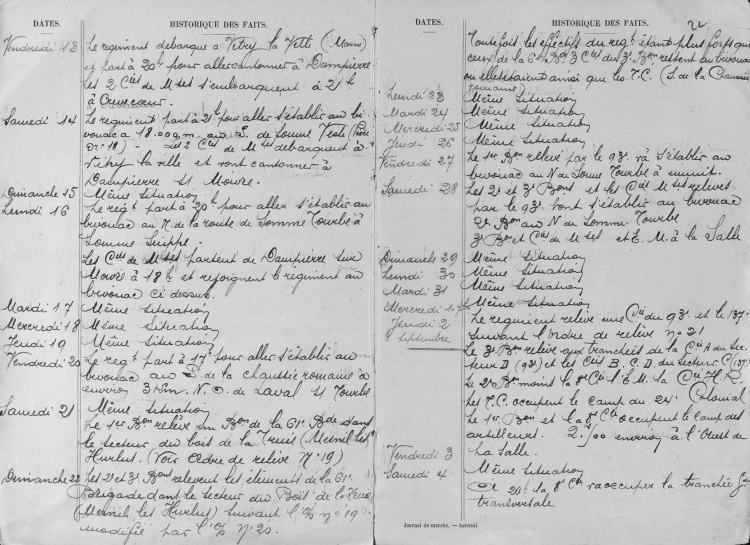 DATES. HISTORIQUE DES FAITS.
Vendredi 13 Le regiment debarque a Vitry la Ville (Marne)
et part à 20h pour aller cantonner à Dampierre
Les 2 Cies de Mses s'embarquent à 21h
à
Samedi 14 Le regiment part à 21h pour aller s'établir au bi-
vouac à 18.000 m. au S. de Somme Vesle (
N° 18) - Les 2 Cies de Mses debarquent à
Vitry la ville et vont cantonner à
Dampierre St Moivre.
Dimanche 15 Même situation
Lundi 16 Le regt part à 20h pour aller s'établir au
bivouac au N. de la route de Somme Tourbe à
Somme Suippe.
Les Cies de Mses partent de Dampierre sur
Moivre à 18h et rejoignent le régiment au
bivouac ci dessus.
Mardi 17 Même situation
Mercredi 18 Même Situation
Jeudi 19 Même Situation
Vendredi 20 Le regt part à 17h pour aller s'établir au
bivouac au S. de la chaussée romaine à
environ 3 Km. N. O. de Laval St Tourbe
Samedi 21 Même situation
Le 1er Bon relève un Bon de la 61e Bde dans
le secteur du bois de la Truie (Mesnil les
Hurlus. (Voir Ordre de relève N° 19)
Dimanche 22 Les 2e et 3e Bons relevent les éléments de la 61e
Brigade dans le secteur du Bois de la Truie
(Mesnil les Hurlus) suivant l'O/ n° 19
modifié par l'O/ N° 20.
DATES. HISTORIQUE DES FAITS.
Toutefois les effectifs du regt étant plus forts que
ceux de la 61e Bde 3 Cies du 3e Bon restent au bivouac
ou elles etaient ainsi que les T.C. (S. de la Chaussée
romaine)
Lundi 23 Même Situation
Mardi 24 Même Situation
Mercredi 25 Même Situation
Jeudi 26 Même Situation
Vendredi 27 Le 1er Bon relevé par le 93e va s'établir au
bivouac au N de Somme Tourbe à minuit.
Samedi 28 Les 2e et 3e Bons et les Cies Mses relevés
par le 93e vont s'établir au bivouac
2e Bon au N de Somme. Tourbe
3e Bon et Cies de Mses et E. M. à la Salle
Dimanche 29 Même Situation
Lundi 30 Même Situation
Mardi 31 Même Situation
Mercredi 1er Même Situation
Jeudi 2 Le regiment relève une Cie du 93e et le 137e
Septembre suivant l'ordre de relève n° 21
Le 3e Bon relève aux tranchées de la Cie A du Sec-
teur D (93e) et les Cies B. C. D. du Secteur C (137e)
Le 2e Bon moins la 8e Cie l'E. M. la Cie H. R.
les T.C. occupent le camp du 24e Colonial
Le 1er Bon et la 8e Cie occupent le camp des
artilleurs. 2.500 environ à l'Ouest de
La Salle.
Vendredi 3 Même Situation
Samedi 4
A 20h la 8e Cie va occuper la tranchée
transversale
Journal de marche. — Interval